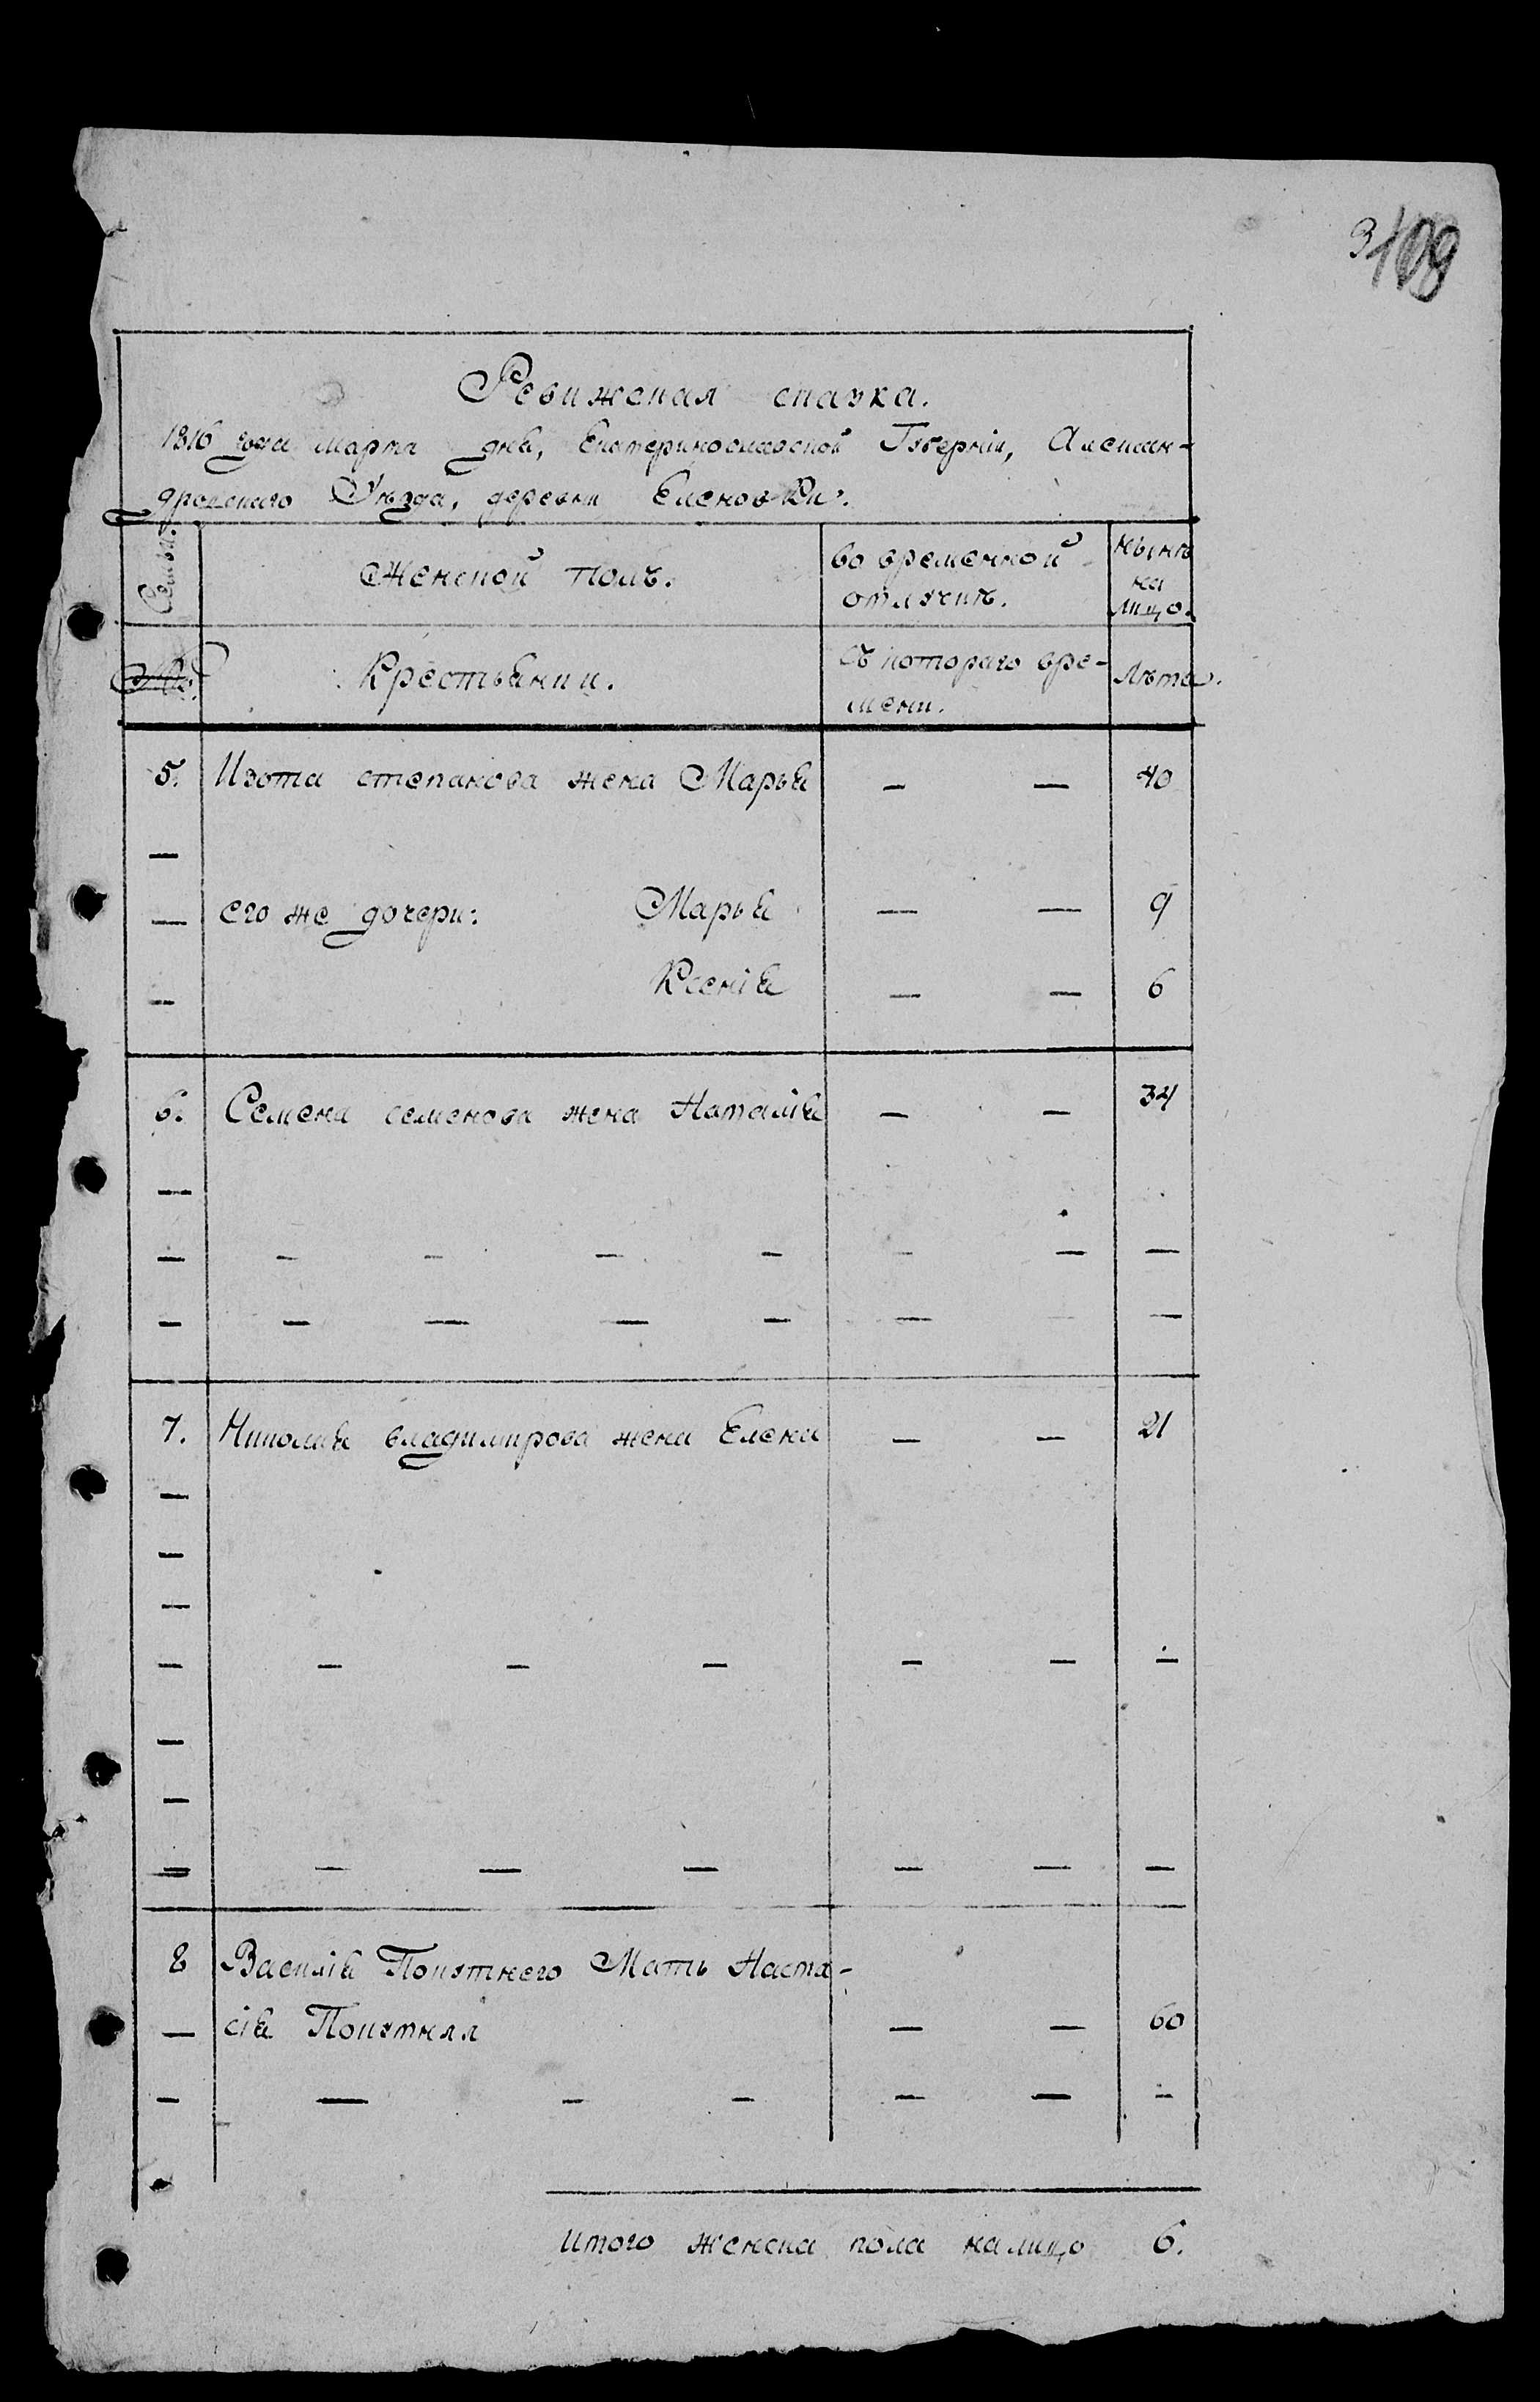 3 109
Ревижская сказка.
1816 года марта дня, Екатеринославской Губерніи, Алексан-
дровского Уѣзда, деревни Еленовки.
Семьи.
Женской полъ.
во временной
отлучкѣ.
нынѣ
на
лицо.
№.
Крестьянки.
Съ котораго вре-
мени.
Лѣта.
5. Изота степанова жена Марья — — 40
—
— его же дочери: Марья — — 9
— Ксенія — — 6
6. Семена семенова жена Наталія — — 34
—
— — — — — — — —
— — — — — — — —
7. Николая владимирова жена Елена — — 21
—
—
—
— — — — — — —
—
—
— — — — — — —
8 Василія Покутнего Мать Наста-
— сія Покутняя — — 60
— — — — — — —
итого женска пола налицо 6.